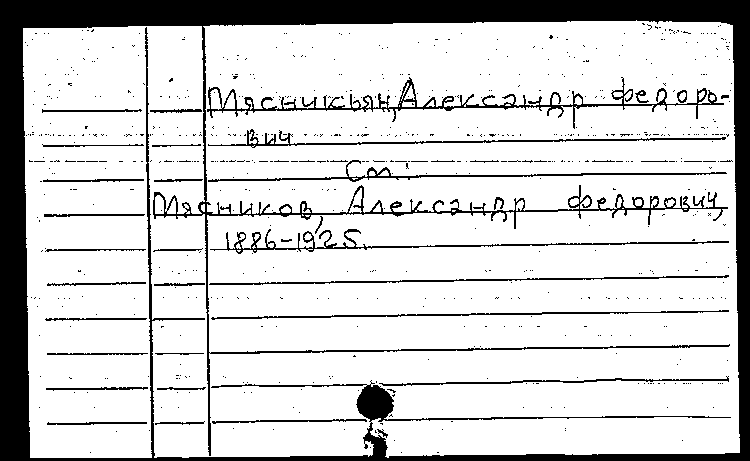 Мясникьян, Александр Федоро-
вич
См.:
Мясников, Александр Федорович,
1886-1925.